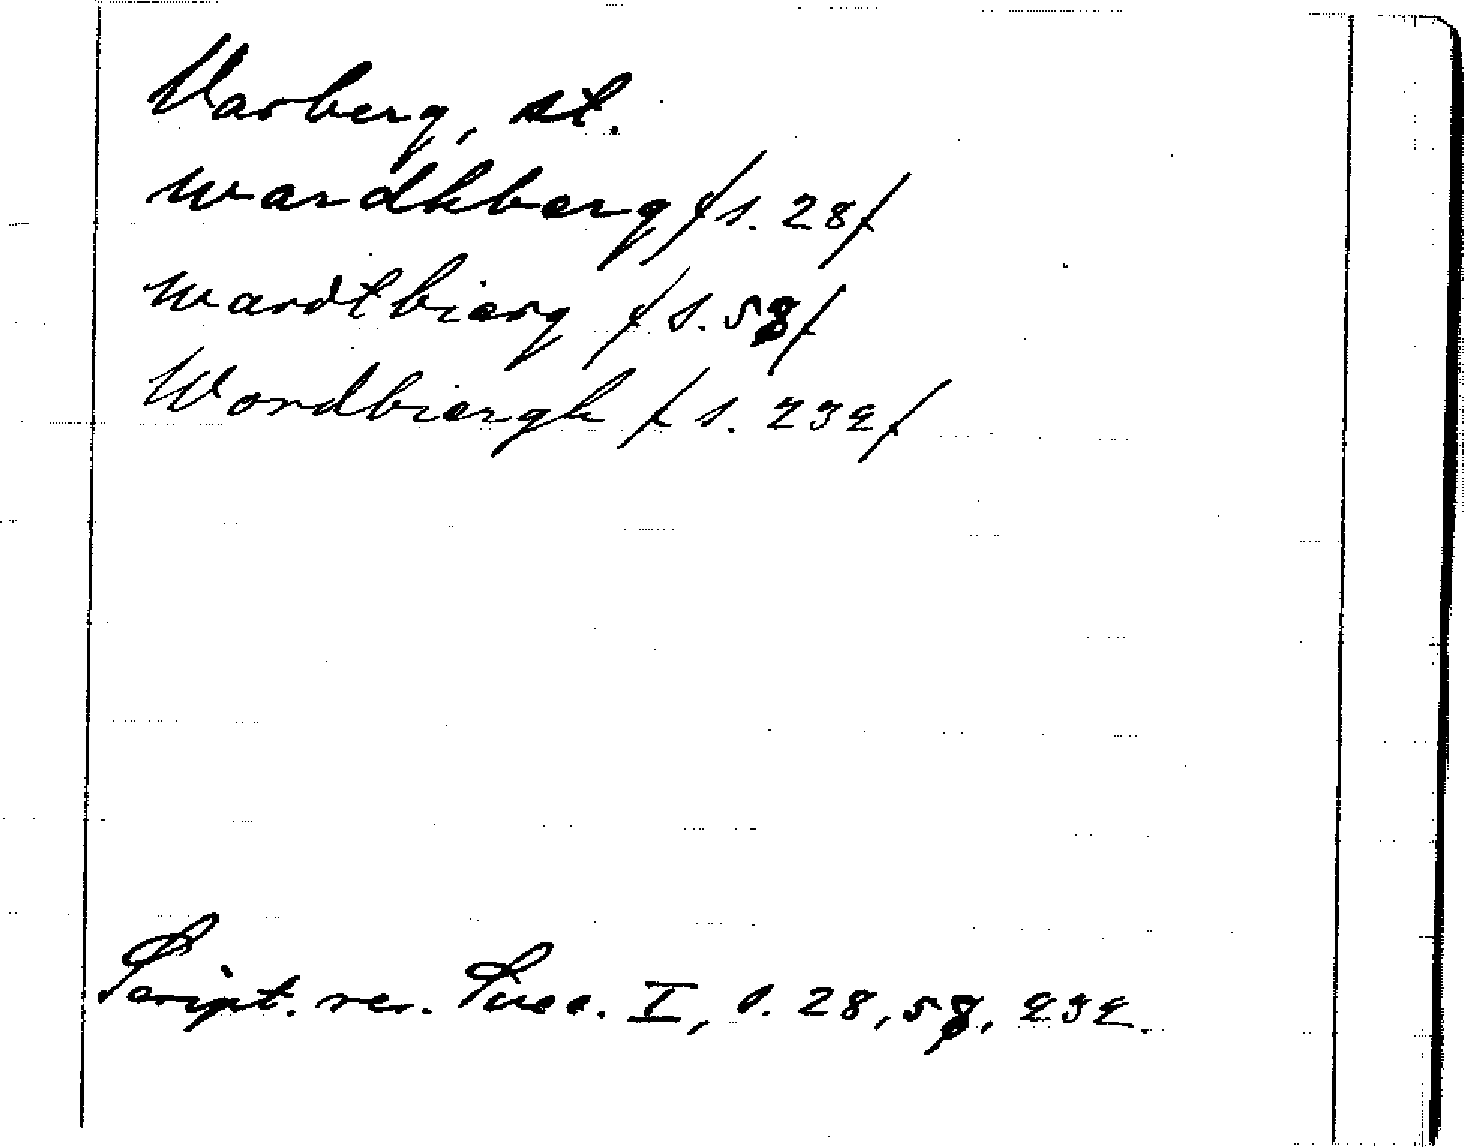 Varberg, st.
Wardhberg /s. 28/
Wardtbierg /s. 58/
Wordbiergh /s. 232/
Script. rer. Suec. I, s. 28, 58, 232.